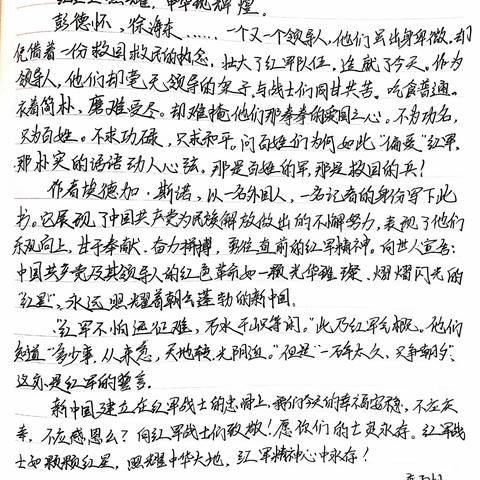 中华现辉煌。
彭德怀，徐海东……一个又一个领导人，他们虽出身卑微，却
凭借着一份救国救民的执念，壮大了红军队伍，造就了今天。作为
领导人，他们却毫无领导的架子，与战士们同甘共苦。吃食普通，
衣着简朴，磨难受尽。却难掩他们那拳拳的爱国之心。不为功名，
只为百姓。不求功碌，只求和平。问百姓们为何如此“偏爱”红军，
那朴实的话语动人心弦。那是百姓的军，那是救国的兵！
作者埃德加·斯诺，以一名外国人，一名记者的身份写下此
书。它展现了中国共产党为民族解放做出的不懈努力，表现了他们
乐观向上，甘于奉献、奋力拼搏，勇往直前的红军精神。向世人宣告：
中国共产党及其领导人的红色革命如一颗光华璀璨、熠熠闪光的
“红星”，永远照耀着朝气蓬勃的新中国。
“红军不怕远征难，万水千山只等闲。”此乃红军气概。他们
知道“多少事，从来急，天地转，光阴迫。”但是“一万年太久，只争朝夕”，
这亦是红军的誓言。
新中国建立在红军战士的忠骨上，我们今天的幸福安稳，不应庆
幸，不应感恩么？向红军战士们致敬！愿你们的士英永存。红军战
士如颗颗红星，照耀中华大地，红军精神心中永存！